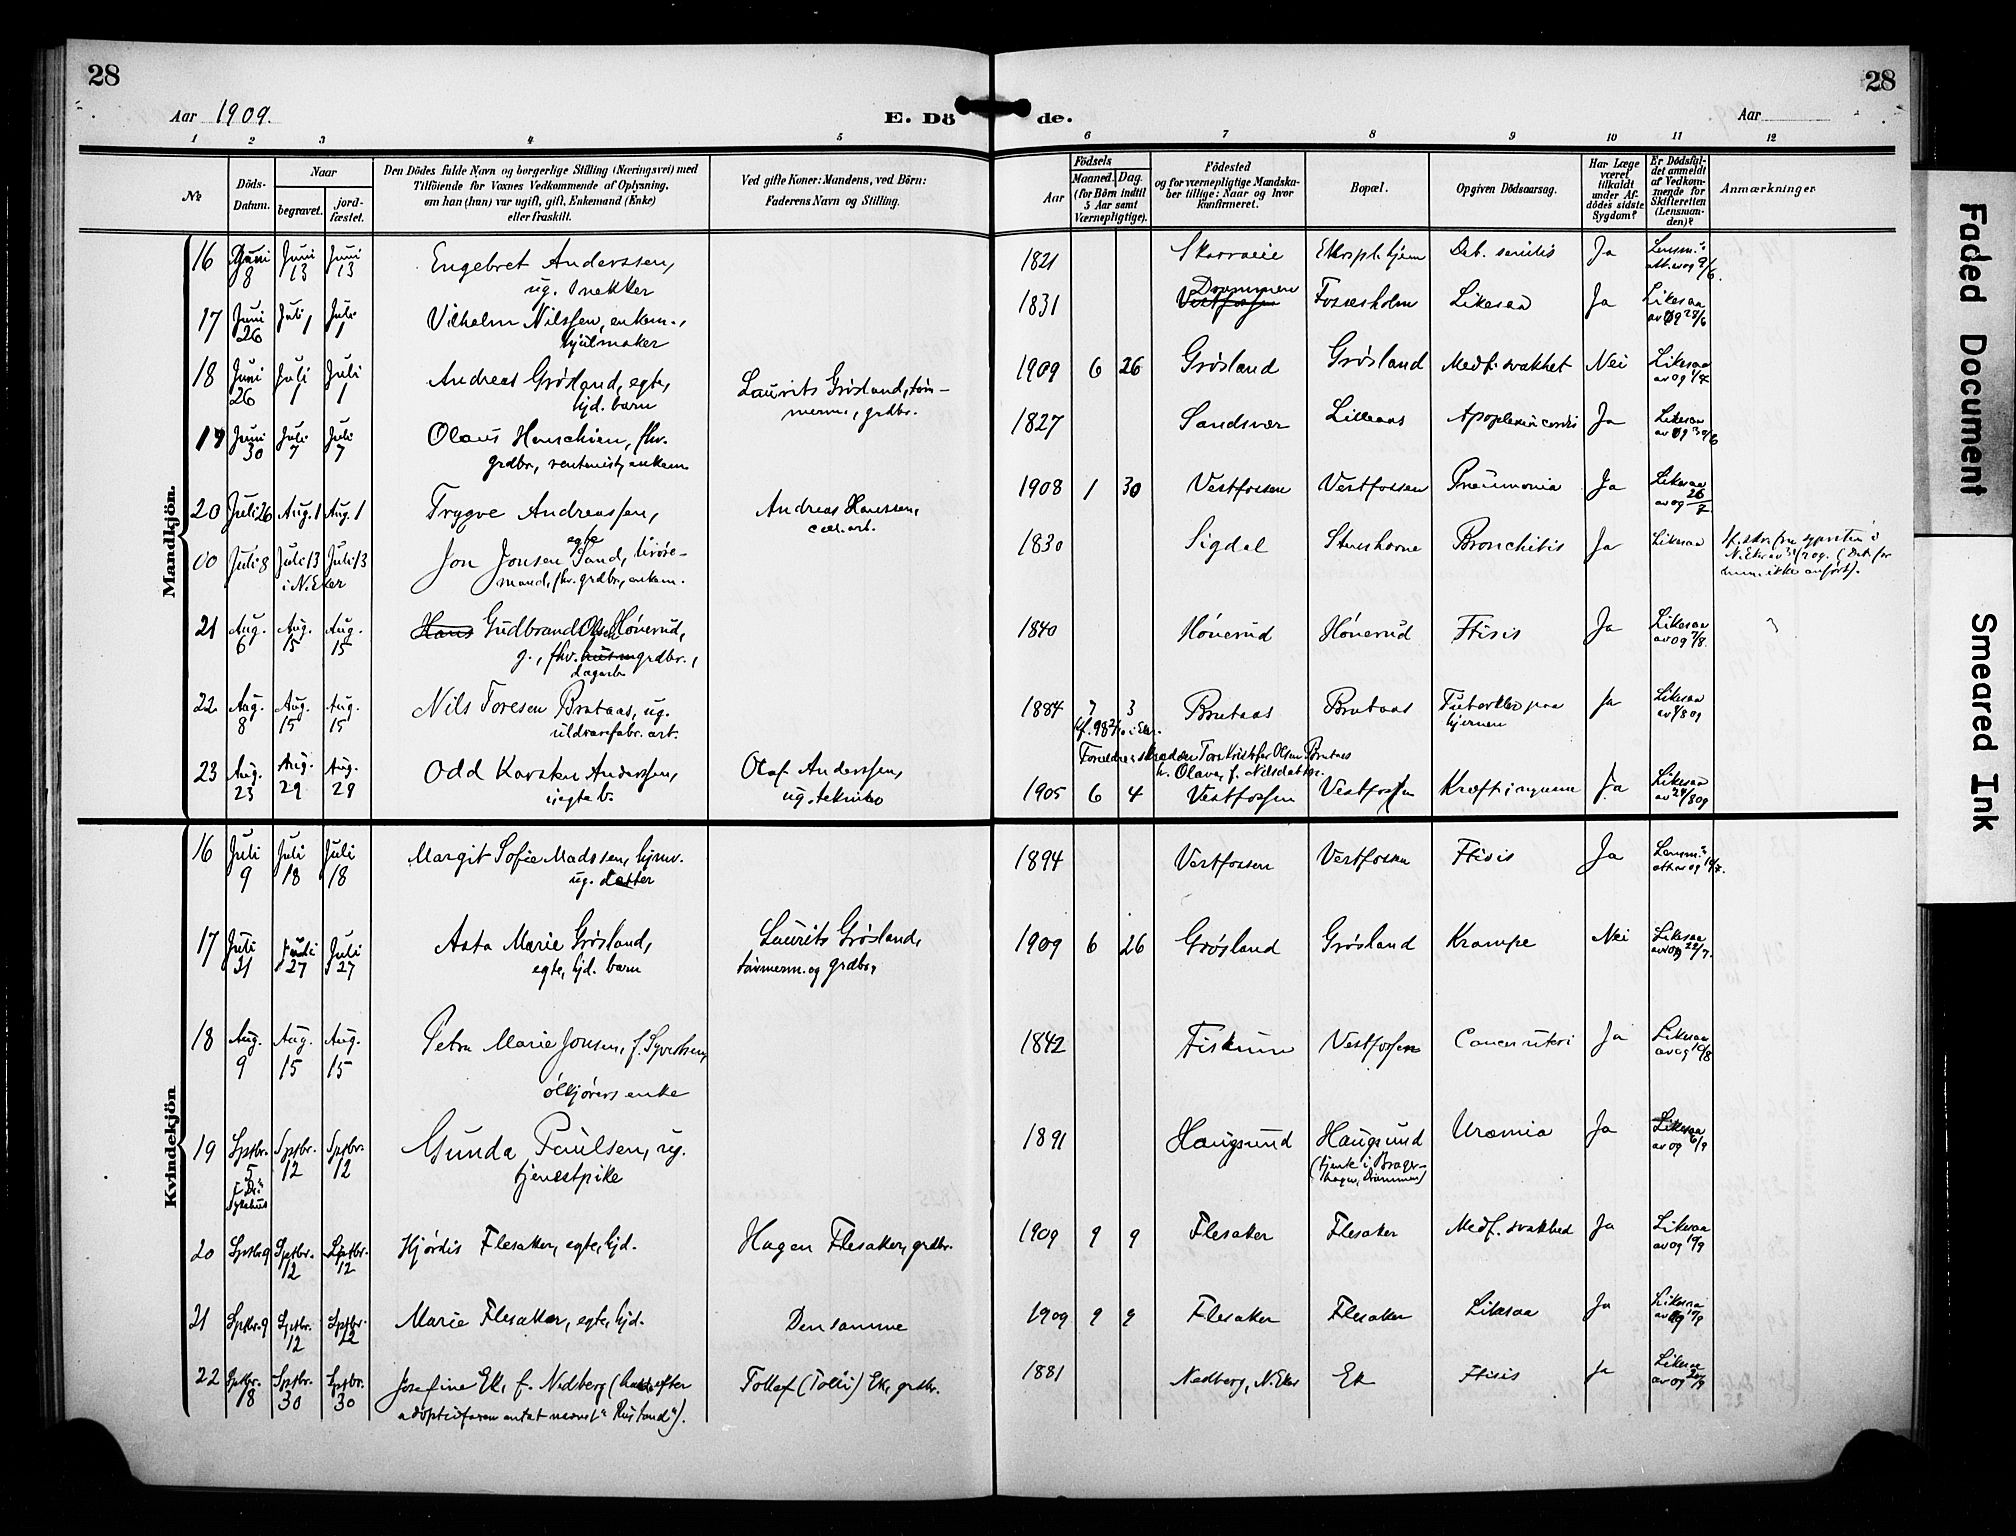 28
28
Aar 1909.
E. Dö de.
Aar
1 2 3 4 5 6 7 8 9 10 11 12
No
Döds-Datum.
Naar
begravet.
jord-fæstet.
Den Dödes fulde Navn og borgerlige Stilling (Næringsvei) med
Tilföiende for Voxnes Vedkommende af Oplysning,
om han (hun) var ugift, gift, Enkemand (Enke)
eller fraskilt.
Ved gifte Koner: Mandens, ved Börn:
Faderens Navn og Stilling.
Födsels
Aar
Maaned. Dag.
(for Börn indtil
5 Aar samt
Værnepligtige).
Födested
og for værnepligtige Mandska-
ber tillige: Naar og hvor
konfirmeret.
Bopæl.
Opgiven Dödsaarsag.
Har Læge
været
tilkaldt
under Af-
dödes sidste
Sygdom?
Er Dödsfal-
det anmeldt
af Vedkom-
mende for
Skifteretten
(Lensman-
den)?
Anmærkninger
Mandkjön.
16 Juni 8 Juni 13 Juni 13 Engebret Anderssen, 1821 Deb. senilis Ja
ug. snekker
17 Juni 26 Juli 1 Juli 1 Vilhelm Nilssen, enkem., 1831 Drammen Vestfossen Fossesholm Likesaa Ja Likesaa av 09 28/6
hjulmaker
18 Juni 26 Juli 1 Juli 1 Andreas Grøsland, egte, Laurits Grøsland, tøm- 1909 6 26 Grøsland Grøsland Medf. svakhet Nei Likesaa
hjd. barn merm., grdbr.
19 Juni 30 Juli 7 Juli 7 Olaus Henschien, fhv. 1827 Sandsvær Lilleaas Apoplexia cordis Ja Likesaa av 09 30/6
grdbr., rentenist, enkem.
20 Juli 26 Aug. 1 Aug. 1 Trygve Andreassen, Andreas Hanssen, 1908 1 30 Vestfossen Vestfossen Pneumonia Ja Likesaa av 09 26/7
egte cel. arb.
00 Juli 8 Juli 13 Juli 13 Jon Jonsen Sand, livøre- 1830 Sigdal Bronchitis Ja Likesaa
i N. Eker mand, fhv. grdbr., enkem.
21 Aug. 6 Aug. 15 Aug. 15 Hans Gudbrand Olsen Hønerud, 1840 Hønerud Hønerud Ftisis Ja Likesaa av 09 7/8.
g., fhv. husm grdbr.,
dagarb.
22 Aug. 8 Aug. 15 Aug. 15 Nils Toresen Brataas, ug. 1884 7 3 Brataas Brataas Tuberkler paa hjernen Ja Likesaa
uldvarefabr. arb.
Forældre: skrædder Tore Kristofer Olsen Brataas
h. Olava, f. Nilsdatter.
23 Aug. 23 Aug. 29 Aug. 29 Odd Karsten Anderssen, Olaf Anderssen, 1905 6 4 Vestfossen Vestfossen Kræft i nyrene Ja Likesaa av 24/8 09
uegte b. ug. tekniko
Kvindekjön
16 Juli 9 Juli 18 Juli 18 Margit Sofie Madssen, hjmv. 1894 Vestfossen Vestfossen Ftisis Ja
ug. datter
17 Juli 21 Juli 27 Juli 27 Asta Marie Grøsland, Laurits Grøsland, 1909 6 26 Grøsland Grøsland Krampe Nei Likesaa av 09 22/7.
egte, hjd. barn tømmerm. og grdbr.
18 Aug. 9 Aug. 15 Aug. 15 Petra Marie Jonsen, f. Syvertsen, 1842 Fiskum Vestfossen Cancer uteri Ja Likesaa av 09 10/8
ølkjørers enke
19 Sptbr. 5 Sptbr. 12 Sptbr. 12 Gunda Paulsen, ug. 1891 Haugsund Haugsund Uræmia Ja Likesaa av 09 6/9
i Dr. Sykehus tjenestpike (tjente i Brager-
nes, Drammen)
20 Sptbr 9 Sptbr. 12 Sptbr. 12 Hjørdis Flesaker, egte, hjd. Hagen Flesaker, grdbr. 1909 9 9 Flesaker Flesaker Medf. svakhed Ja Likesaa av 09 10/9
21 Sptbr. 9 Sptbr. 12 Sptbr. 12 Marie Flesaker, egte, hjd. Den samme 1909 9 9 Flesaker Flesaker Likesaa Ja Likesaa av 09 10/9
22 Sptbr. 18 Sptbr. 30 Sptbr. 30 Josefine Ek, f. Nedberg ( efter Tollef (Tolli) Ek, grdbr. 1881 Nedberg, N. Eker Ek Ftisis Ja Likesaa av 09 20/9
adoptivfaren antat navnet "Rustand").
Faded Document
Smeared Ink